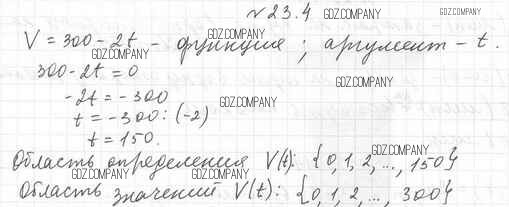 № 23.4 GDZ.COMPANY GDZ.COMPANY
V = 300 - 2t - функция; аргумент - t.
GDZ.COMPANY
300 - 2t = 0
GDZ.COMPANY
-2t = -300
GDZ.COMPANY
t = -300 : (-2)
t = 150.
GDZ.COMPANY
Область определения V(t): {0, 1, 2, ..., 150}
GDZ.COMPANY
Область значений V(t): {0, 1, 2, ..., 300}